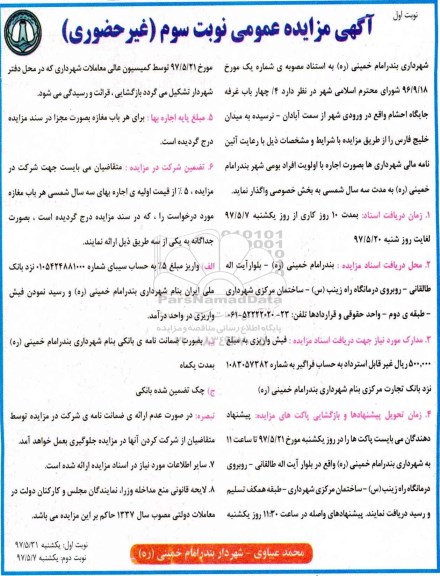 نوبت اول
آگهی مزایده عمومی نوبت سوم (غیرحضوری)
شهرداری بندرامام خمینی (ره) به استناد مصوبه ی شماره یک مورخ
۹۶/۹/۱۸ شورای محترم اسلامی شهر در نظر دارد ۴/ چهار باب غرفه
جایگاه احشام واقع در ورودی شهر از سمت آبادان - نرسیده به میدان
خلیج فارس را از طریق مزایده با شرایط و مشخصات ذیل با رعایت آئین
نامه مالی شهرداری ها بصورت اجاره با اولویت افراد بومی شهر بندرامام
خمینی (ره) به مدت سه سال شمسی به بخش خصوصی واگذار نماید.
۱. زمان دریافت اسناد: بمدت ۱۰ روز کاری از روز یکشنبه ۹۷/۵/۷
لغایت روز شنبه ۹۷/۵/۲۰
۲. محل دریافت اسناد مزایده : بندرامام خمینی (ره) - بلوار آیت اله
طالقانی - روبروی درمانگاه راه زینب (س) - ساختمان مرکزی شهرداری
- طبقه ی دوم - واحد حقوقی و قراردادها تلفن: ۲۳-۵۲۲۲۲۰۲۰-۰۶۱
۳. مدارک مورد نیاز جهت دریافت اسناد مزایده : فیش واریزی به مبلغ
۵۰۰,۰۰۰ ریال غیر قابل استرداد به حساب فراگیر به شماره ۱۰۸۳۰۵۷۳۸۲
نزد بانک تجارت مرکزی بنام شهرداری بندرامام خمینی (ره)
۴. زمان تحویل پیشنهادها و بازگشایی پاکت های مزایده: پیشنهاد
دهندگان می بایست پاکت ها را در روز یکشنبه مورخ ۹۷/۵/۲۱ تا ساعت ۱۱
به شهرداری بندرامام خمینی (ره) واقع در بلوار آیت اله طالقانی - روبروی
درمانگاه راه زینب (س) - ساختمان مرکزی شهرداری - طبقه همکف تسلیم
و رسید دریافت نمایند. پیشنهادهای واصله در ساعت ۱۱:۳۰ روز یکشنبه
مورخ ۹۷/۵/۲۱ توسط کمیسیون عالی معاملات شهرداری که در محل دفتر
شهردار تشکیل می گردد بازگشایی ، قرائت و رسیدگی می شود.
۵. مبلغ پایه اجاره بها : برای هر باب مغازه بصورت مجزا در سند مزایده
درج گردیده است.
۶. تضمین شرکت در مزایده : متقاضیان می بایست جهت شرکت در
مزایده ، ۵ ٪ از قیمت اولیه ی اجاره بهای سه سال شمسی هر باب مغازه
مورد درخواست را ، که در سند مزایده درج گردیده است ، بصورت
جداگانه به یکی از سه طریق ذیل ارائه نمایند.
الف) واریز مبلغ ۵٪ به حساب سیبای شماره ۰۱۰۵۴۲۴۸۸۱۰۰۰ نزد بانک
ملی ایران بنام شهرداری بندرامام خمینی (ره) و رسید نمودن فیش
واریزی در واحد درآمد.
ب) بصورت ضمانت نامه ی بانکی بنام شهرداری بندرامام خمینی (ره)
بمدت یکماه
ج) چک تضمین شده بانکی
تبصره: در صورت عدم ارائه ی ضمانت نامه ی شرکت در مزایده توسط
متقاضیان از شرکت کردن آنها در مزایده جلوگیری بعمل خواهد آمد.
۷. سایر اطلاعات مورد نیاز در اسناد مزایده ارائه شده است.
۸. لایحه قانونی منع مداخله وزرا، نمایندگان مجلس و کارکنان دولت در
معاملات دولتی مصوب سال ۱۳۳۷ حاکم بر این مزایده می باشد.
نوبت اول: یکشنبه ۹۷/۵/۳۱
نوبت دوم: یکشنبه ۹۷/۵/۷
محمد عبیاوی - شهردار بندرامام خمینی (ره)
ParsNamadData
پایگاه اطلاع رسانی مناقصه و مزایده